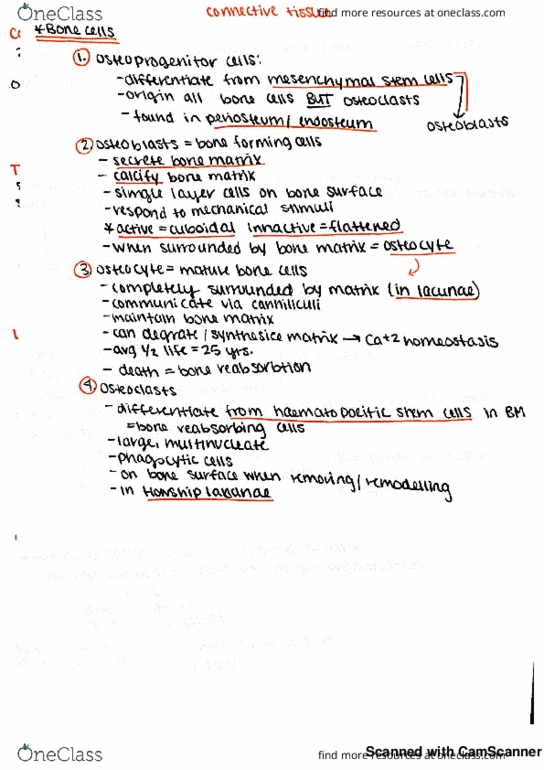 OneClass
connective tissue
find more resources at oneclass.com
* Bone cells
1. osteoprogenitor cells:
- differentiate from mesenchymal stem cells
- origin all bone cells BUT osteoclasts
- found in periosteum/endosteum
osteoblasts
2. osteoblasts = bone forming cells
- secrete bone matrix
- calcify bone matrix
- single layer cells on bone surface
- respond to mechanical stimuli
* active = cuboidal innactive = flattened
- when surrounded by bone matrix = osteocyte
3. osteocyte = mature bone cells
- completely surrounded by matrix (in lacunae)
- communicate via canniliculi
- maintain bone matrix
- can degrate / synthesice matrix → Ca+2 homeostasis
- avg ½ life = 25 yrs.
- death = bone reabsorbtion
4. osteoclasts
- differentiate from haematopoeitic stem cells in BM
= bone reabsorbing cells
- large, multinucleate
- phagocytic cells
- on bone surface when removing / remodelling
- in Howship lacunae
OneClass
find more resources at oneclass.com
Scanned with CamScanner